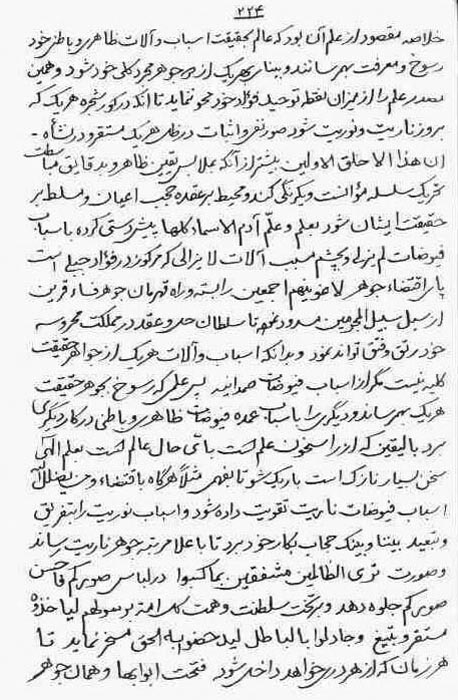 ۲۲۴
خلاصه مقصود از علم آن بود که عالم بحقیقت اسباب و آلات ظاهری و باطنی خود
رسوخ و معرفت بهم رسانند و بینای بهر یک از سر جوهر مجرد کلی خود شود و همین
مصدر علم را از میزان نقطه توحید فؤاد خود محو نماید تا آنکه در کور شجره هر یک که
بروز ناریت و نوریت شود صور نفی و اثبات در ظل هر یک مستقر و نشأه -
ان هذا الا خلق الاولین بیشتر از آنکه بملابس یقین ظاهر و بدقایق مناسبات
تحریک سلسله مؤالفت و یکرنگی کند و محیط بر عقده حجب اعیان و مسلط بر
حقیقت ایشان شود بعلم و علّم آدم الاسماء کلها پیش دستی کرده باسباب
فیوضات لم یزلی و بچشم سبب آلات لا یزالی که مرکوز در فؤاد جبلی است
پای اقتضاء جوهر لاغوینهم اجمعین را بسته و راه قهرمان جوهر فساد قرین
از سبل سبیل المجرمین مسدود نموده تا سلطان حل و عقد در مملکت محروسه
خود رتق و فتق تواند نمود و بدانکه اسباب و آلات هر یک از جواهر حقیقت
کلیه نیست مگر از اسباب فیوضات صمدانیه پس علمی که رسوخ بجوهر حقیقت
هر یک بهم رساند و دیگری را باسباب عمده فیوضات ظاهری و باطنی در کار دیگری
برد بالیقین که از راسخون علم است باقی حال عالم است بعلم الهی
سخن بسیار نازک است باریک شو تا بفهمی مثلاً هر گاه باقتضاء و من یضلل الله
اسباب فیوضات ناریت تقویت داده شود و اسباب نوریت را بتفریق
و تبعید بیننا و بینک حجاب بکار خود برد تا با علا مرتبه جوهر ناریت رساند
و صورت تری الظالمین مشفقین بما کسبوا در لباس صورکم فاحسن
صورکم جلوه دهد و بر تخت سلطنت و همت کل امة برسولهم لیأخذوه
مستقر و بتیغ و جادلوا بالباطل لیدحضوا به الحق مسخر نماید تا
هر زمان که از هر در خواهد داخل شود فتحت ابوابها و همان جوهر